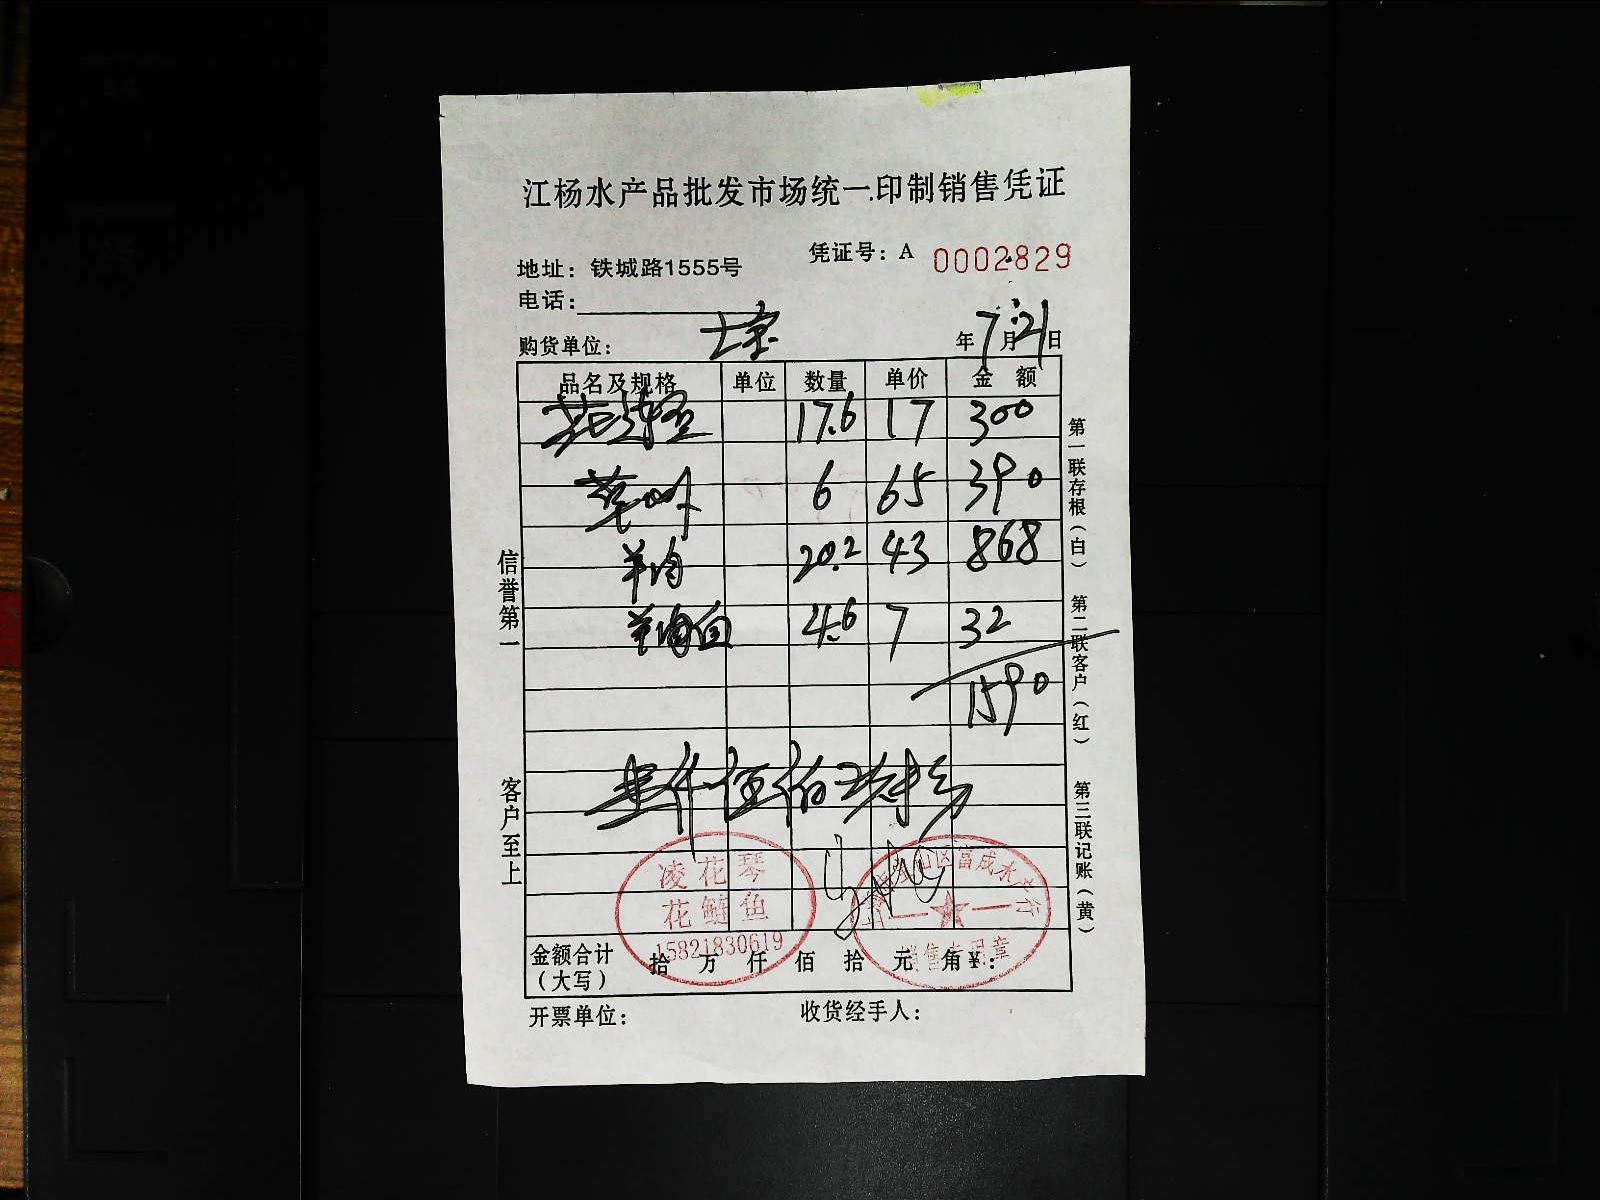 江杨水产品批发市场统一印制销售凭证
地址：铁城路1555号
凭证号：A 0002829
电话：
购货单位：
年7月21日
品名及规格 单位 数量 单价 金额
17.6 17 300
6 65 390
20.2 43 868
4.6 7 32
1590
壹仟伍佰玖拾
凌花琴
花鲢鱼
15821830619
宝山区富成水产行
销售专用章
金额合计（大写） 拾万仟佰拾元角￥：
开票单位： 收货经手人：
信誉第一
客户至上
第一联存根（白）
第二联客户（红）
第三联记账（黄）